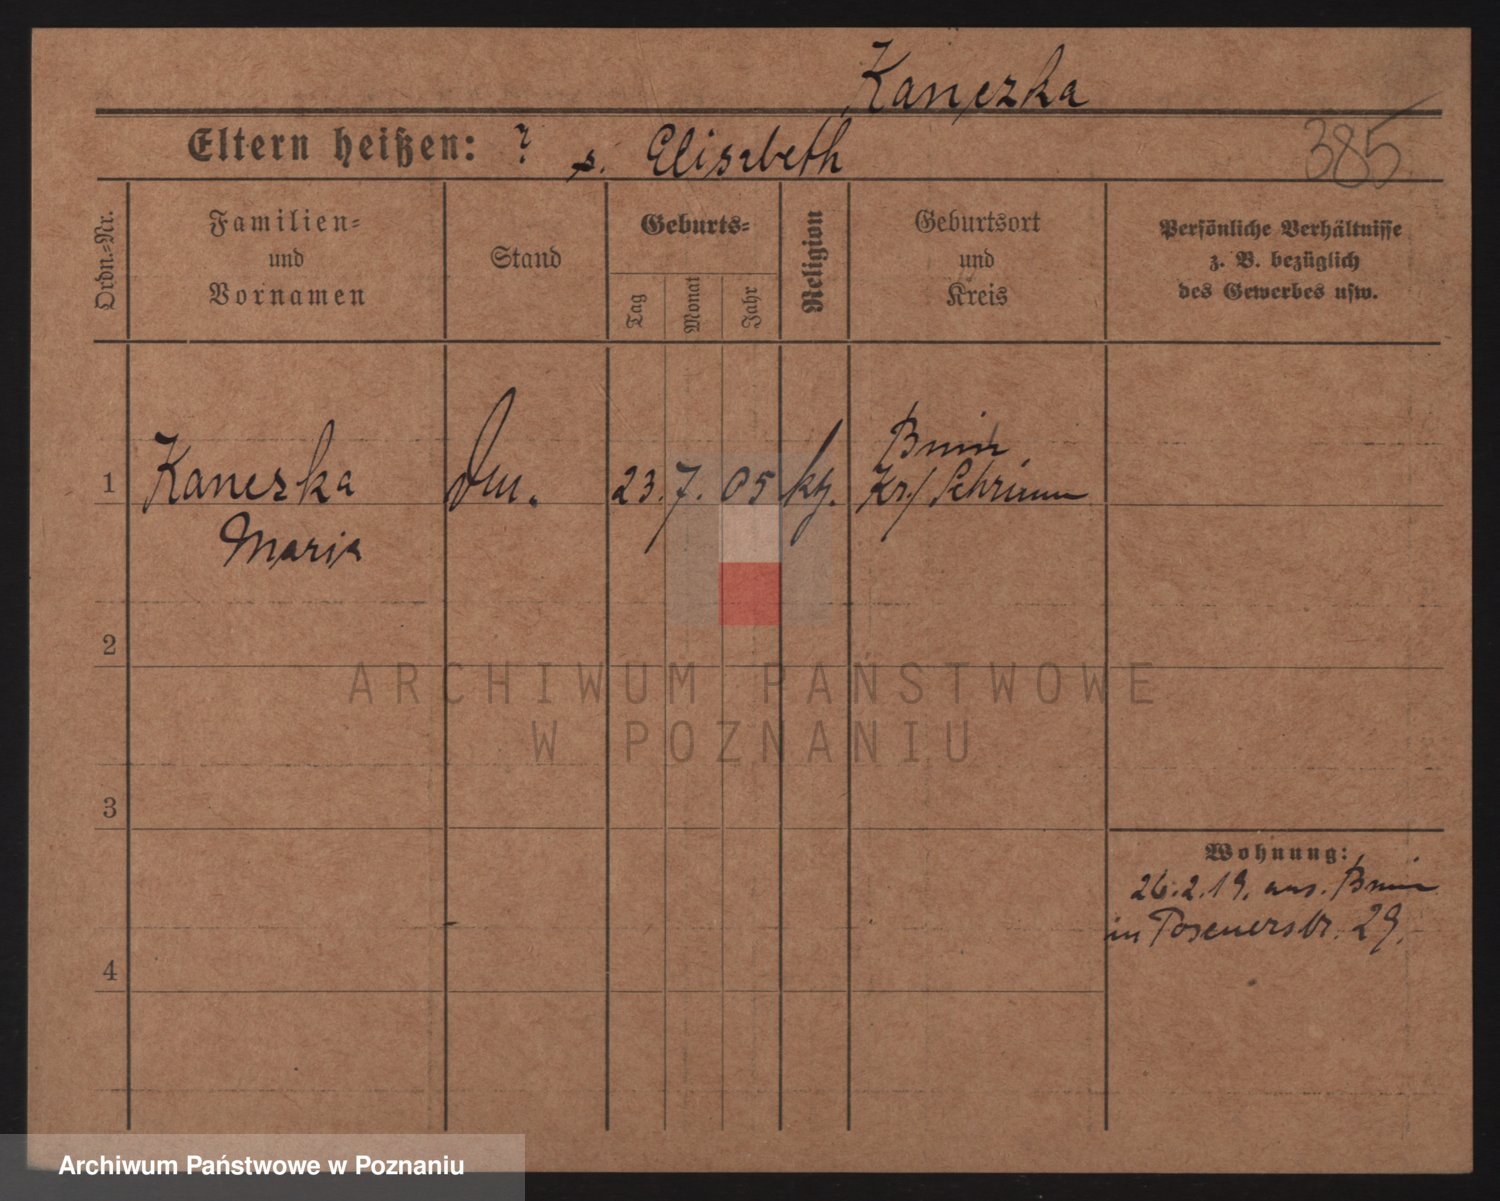 Kanezka
Eltern heißen: ? s. Elisabeth
385
Ordn.-Nr.
Familien-
und
Vornamen
Stand
Geburts-
Tag
Monat
Jahr
Religion
Geburtsort
und
Kreis
Persönliche Verhältnisse
z. B. bezüglich
des Gewerbes usw.
1
Kaneska
23. 7. 05
Bnin
Kr. Schrimm
Maria
2
ARCHIWUM PAŃSTWOWE
W POZNANIU
3
Wohnung:
26.2.19. aus. Bnin
in Posenerstr. 29.
4
Archiwum Państwowe w Poznaniu